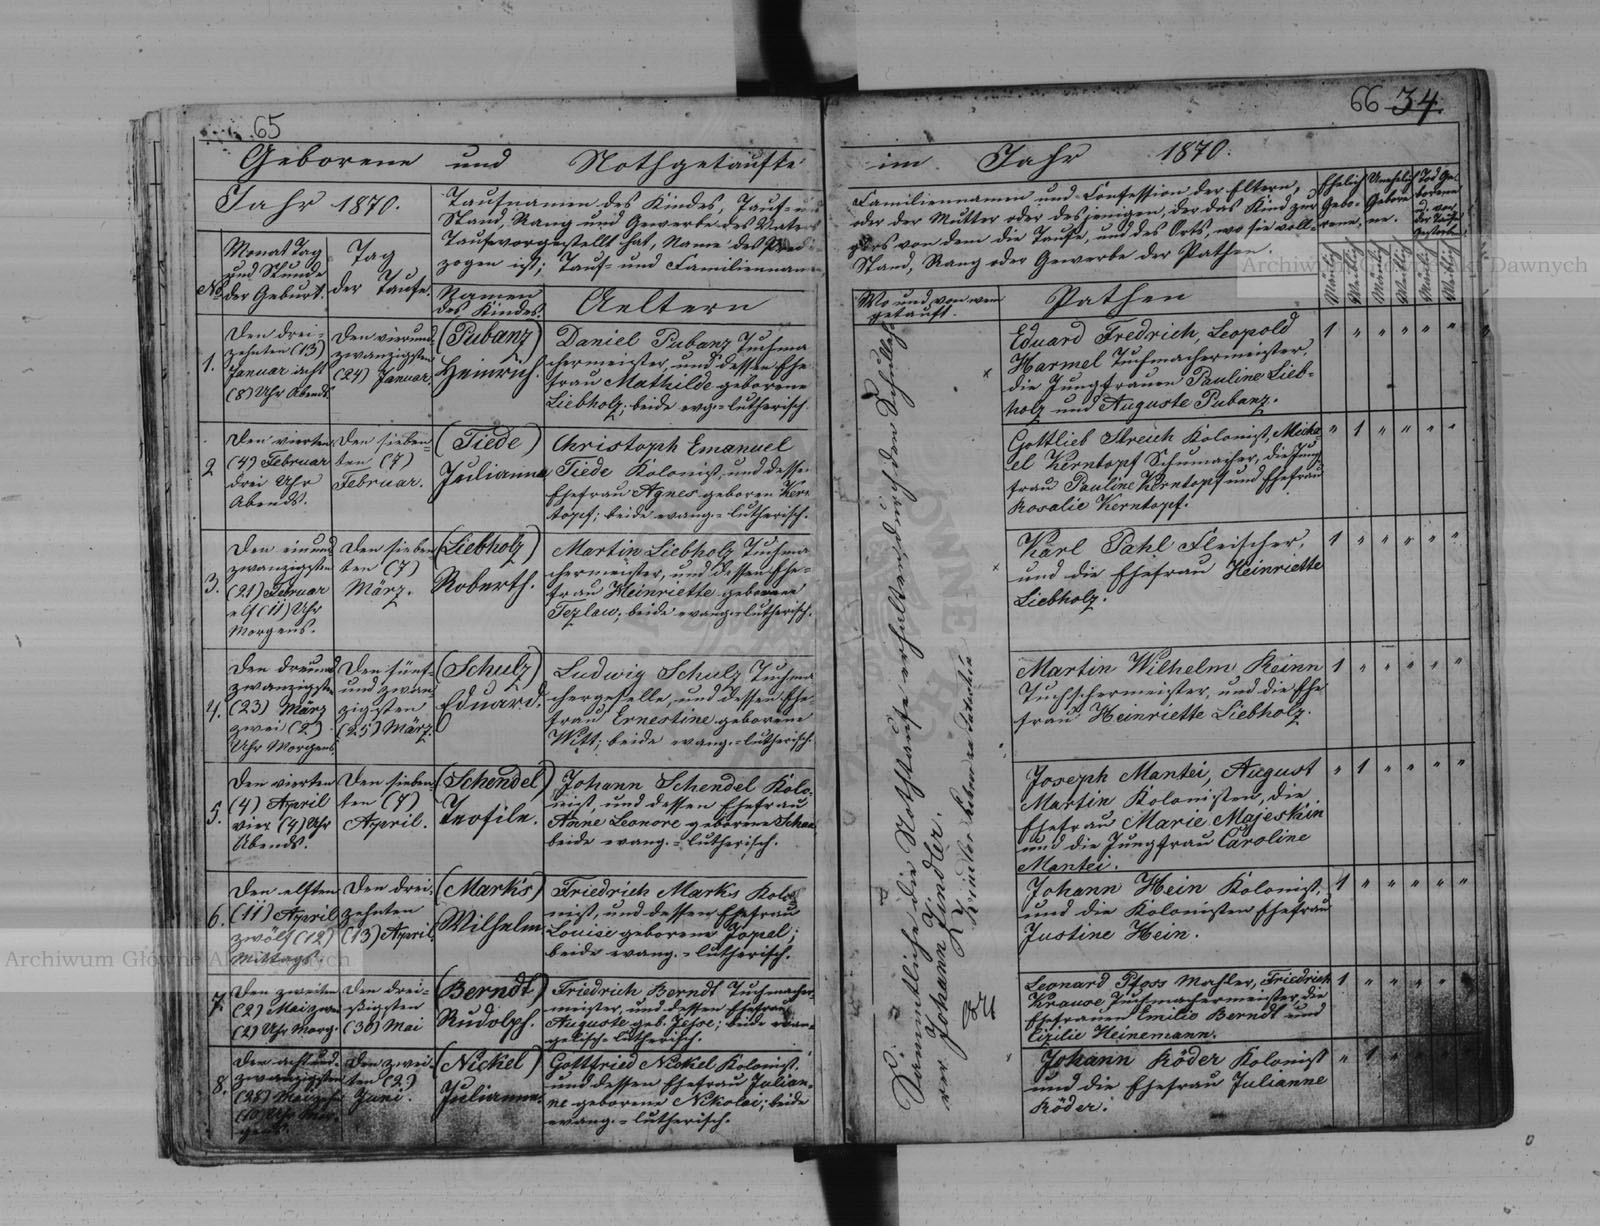 65
Geborene und Nothgetaufte
Jahr 1870.
Taufnamen des Kindes, Tauf- und
Stand, Rang und Gewerbe des Vaters
Taufe vorgestellt hat, Name des
zogen ist; Tauf- und Familienname
No
Monat Tag
und Stunde
der Geburt.
Tag
der Taufe.
Namen
des Kindes.
Aeltern
1.
Den drei-
zehnten (13)
Januar acht
(8) Uhr Abends.
Den vierund
zwanzigsten
(24) Januar.
(Pubanz)
Heinrich.
Daniel Pubanz Tuchma
chermeister, und dessen Ehe
frau Mathilde geborene
Liebholz; beide evg.-lutherisch.
2
Den vierten
(4) Februar
drei Uhr
Abends.
Den sieben-
ten (7)
Februar.
(Tiede)
Julianna
Christoph Emanuel
Tiede Kolonist, und dessen
Ehefrau Agnes geboren Kern
topf; beide evang.-lutherisch.
3.
Den einund
zwanzigsten
(21) Februar
elf (11) Uhr
Morgens.
Den sieben
ten (7)
März.
(Liebholz)
Roberth.
Martin Liebholz Tuchma-
chermeister, und dessen Ehe-
frau Heinriette geborene
Tezlaw; beide evang.-lutherisch.
4.
Den dreiund
zwanzigsten
(23) März
zwei (2)
Uhr Morgens
Den fünf-
und zwan
zigsten
(25) März.
(Schulz)
Eduard.
Ludwig Schulz Tuchma
chergeselle, und dessen Ehe
frau Ernestine geborene
Witt; beide evang.-lutherisch.
5.
Den vierten
(4) April
vier (4) Uhr
Abends.
Den sieben
ten (7)
April.
(Schendel)
Teofile.
Johann Schendel Kolo-
nist, und dessen Ehefrau
Anne Leonore geborene
beide evang.-lutherisch.
6.
Den elften
(11) April
zwölf (12)
Mittags.
Den drei-
zehnten
(13) April.
(Marks)
Wilhelm
Friedrich Marks Kolo
nist, und dessen Ehefrau
Louise geborene Popel;
beide evang.-lutherisch.
7.
Den zweiten
(2) Mai zwei
(2) Uhr Morg.
Den drei-
ßigsten
(30) Mai
(Berndt)
Rudolph.
Friedrich Berndt Tuchmacher
meister, und dessen Ehefrau
Auguste geb. Jesse; beide evan-
gelisch-lutherisch.
8.
Den achtund
zwanzigsten
(28) Mai zehn
(10) Uhr Mor-
gens.
Den zwei-
ten (2)
Juni.
(Nickel)
Julianna.
Gottfried Nickel Kolonist,
und dessen Ehefrau Julian-
ne geborene Nikolai; beide
evang.-lutherisch.
66 34
im Jahr 1870.
Familiennamen und Confession der Eltern,
oder der Mutter oder desjenigen, der das Kind zur
gers von dem die Taufe, und des Orts, wo sie voll-
Stand, Rang oder Gewerbe der Pathen.
Ehelich
Gebo-
rene,
Unehelich
Gebore
ne.
Tod Ge-
borene
u. vor
der Taufe
Gestorbe
Mänlich
Weiblich
Mänlich
Weiblich
Mänlich
Weiblich
Wo und von wem
getauft.
Pathen
Sämmtliche die Nothtaufe erhalten durch den Schulleh
rer Johann Zindler.
Eduard Fredrich, Leopold
Harmel Tuchmachermeister,
die Jungfrauen Pauline Lieb-
holz und Auguste Pubanz.
1 " " " " "
Gottlieb Streich Kolonist, Micha-
el Kerntopf Schumacher, die Jung
frau Pauline Kerntopf und Ehefrau
Rosalie Kerntopf.
" 1 " " " "
Karl Pahl Fleischer,
und die Ehefrau Heinriette
Liebholz.
1 " " " " "
Martin Wilhelm Reinn
Tuchschermeister, und die Ehe
frau Heinriette Liebholz.
1 " " " " "
Joseph Mantei, August
Martin Kolonisten, die
Ehefrau Marie Majeskin
und die Jungfrau Caroline
Mantei.
" 1 " " " "
Johann Hein Kolonist,
und die Kolonisten Ehefrau
Justine Hein.
1 " " " " "
Leonard Ptoss Mahler, Friedrich
Krause Tuchmachermeister, die
Ehefrauen Emilie Berndt und
Cizilie Heinemann.
1 " " " " "
Johann Röder Kolonist
und die Ehefrau Julianne
Röder.
" 1 " " " "
Archiwum Główne Akt Dawnych
Archiwum Główne Akt Dawnych